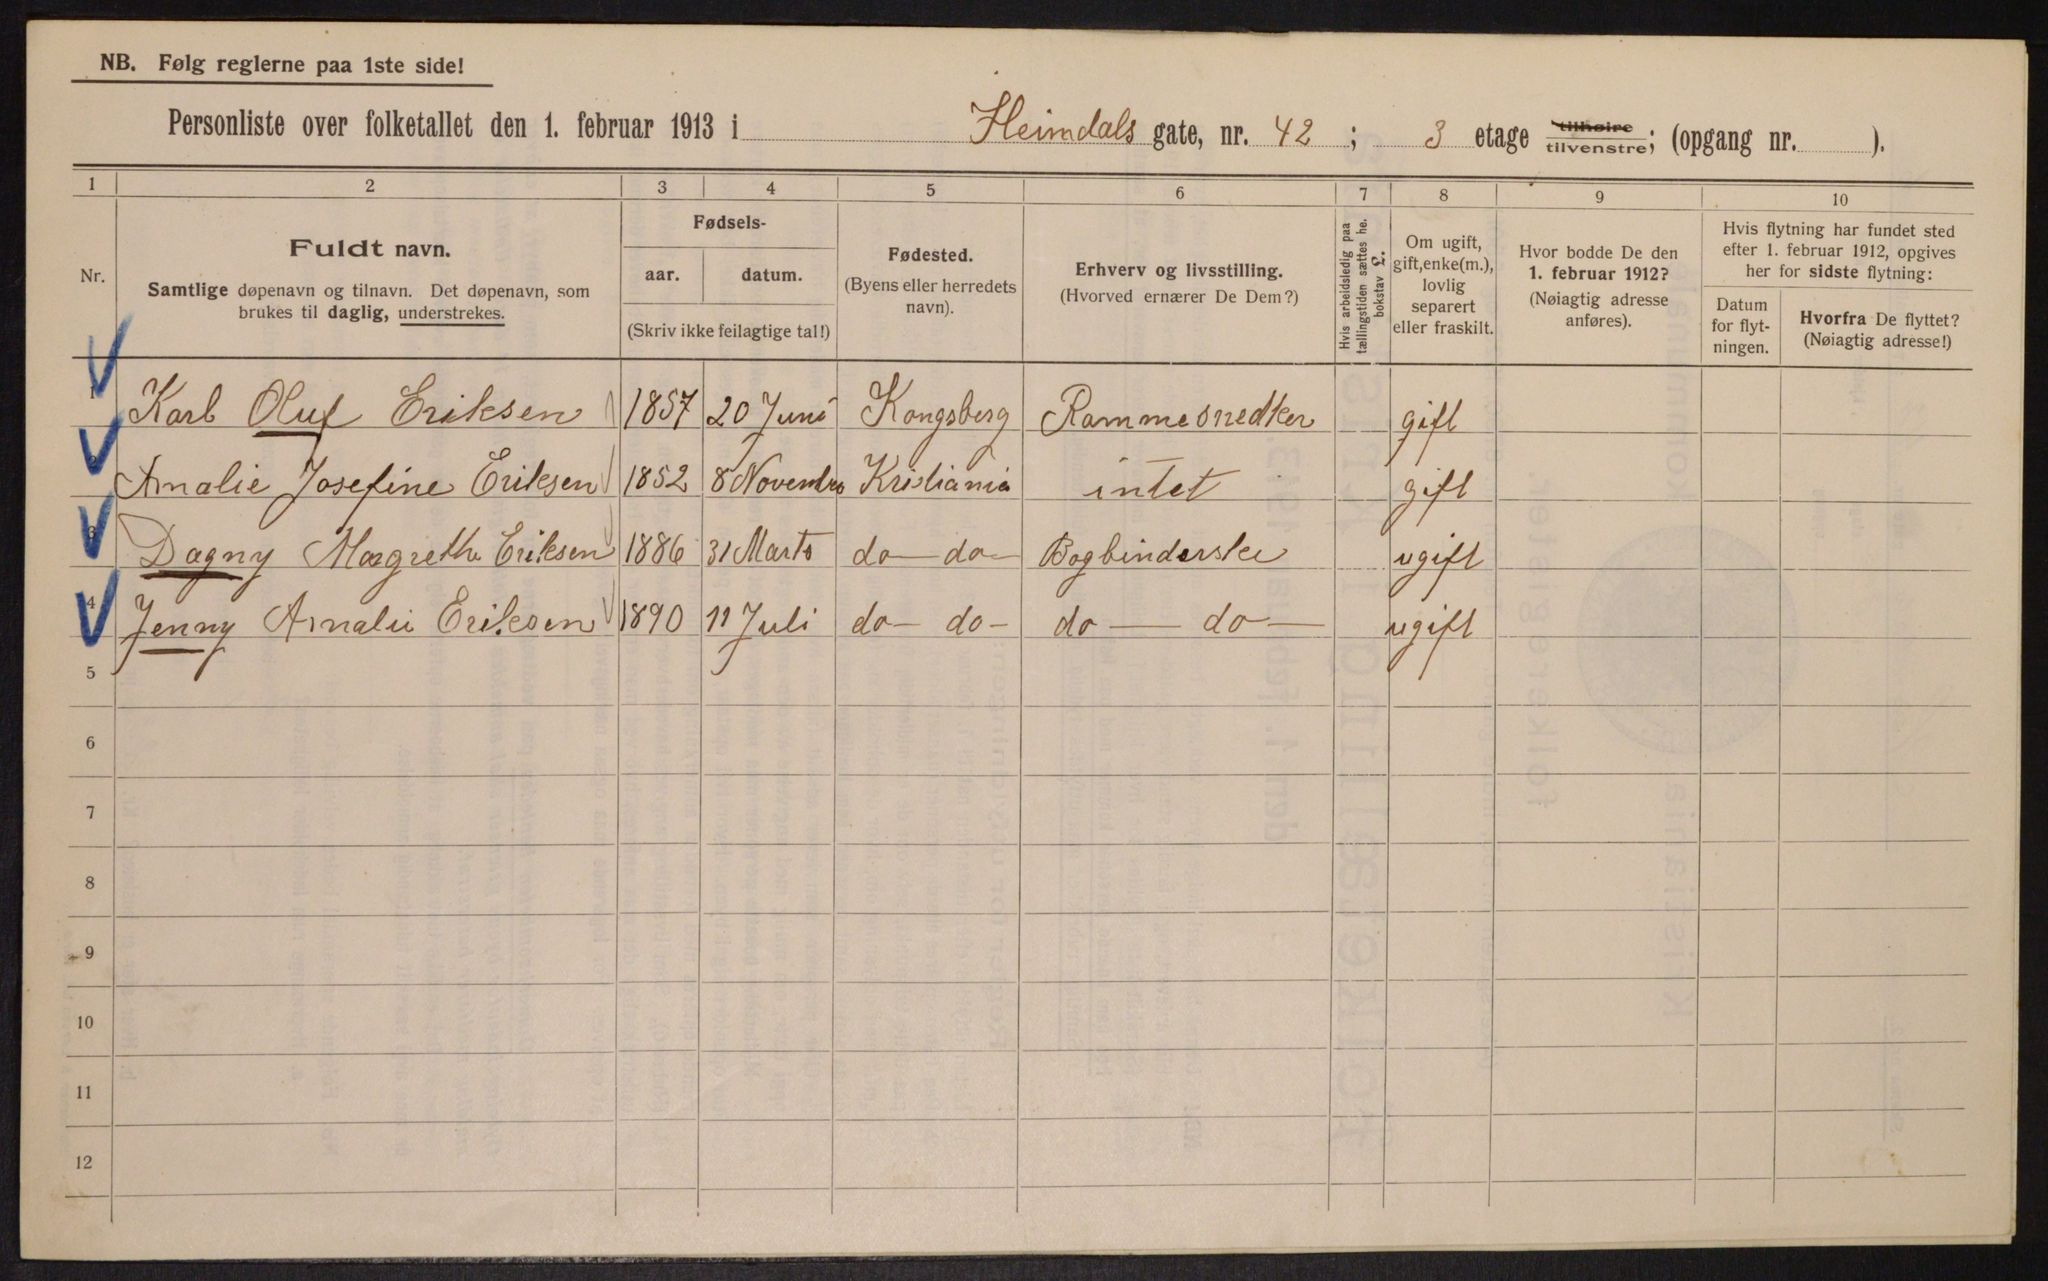 NB. Følg reglerne paa 1ste side!
Personliste over folketallet den 1. februar 1913 i Heimdals gate, nr. 42; 3 etage tilhøire tilvenstre; (opgang nr. ).
1 2 3 4 5 6 7 8 9 10
Nr.
Fuldt navn.
Samtlige døpenavn og tilnavn. Det døpenavn, som
brukes til daglig, understrekes.
Fødsels-
aar. datum.
(Skriv ikke feilagtige tal!)
Fødested.
(Byens eller herredets
navn).
Erhverv og livsstilling.
(Hvorved ernærer De Dem?)
Hvis arbeidsledig paa
tællingstiden sættes he.
bokstav L.
Om ugift,
gift, enke(m.),
lovlig
separert
eller fraskilt.
Hvor bodde De den
1. februar 1912?
(Nøiagtig adresse
anføres).
Hvis flytning har fundet sted
efter 1. februar 1912, opgives
her for sidste flytning:
Datum
for flyt-
ningen.
Hvorfra De flyttet?
(Nøiagtig adresse!)
1 Karl Oluf Eriksen 1857 20 Juni Kongsberg Rammesnedker gift
2 Amalie Josefine Eriksen 1852 8 Novembr Kristiania intet gift
3 Dagny Margrethe Eriksen 1886 31 Marts do do Bogbinderske ugift
4 Jenny Amalie Eriksen 1890 11 Juli do do do do ugift
5
6
7
8
9
10
11
12